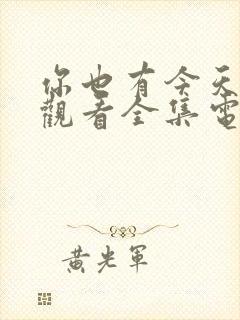 你也有今天
觀看全集電
黃光軍